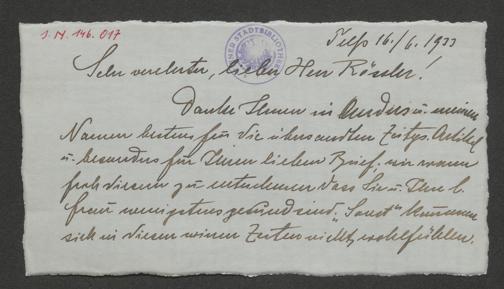 I.N. 146.017
Telfs 16./6. 1933
Sehr verehrter, lieber Herr Rössler!
Danke Ihnen in Anders u. meinem
Namen bestens für die übersandten Zeitgs. Artikel
u. besonders für Ihren lieben Brief, wir waren
froh diesem zu entnehmen dass Sie u. Ihre l.
Frau wenigstens gesund sind. "Sonst" kann man
sich in diesen wirren Zeiten nicht wohlfühlen.